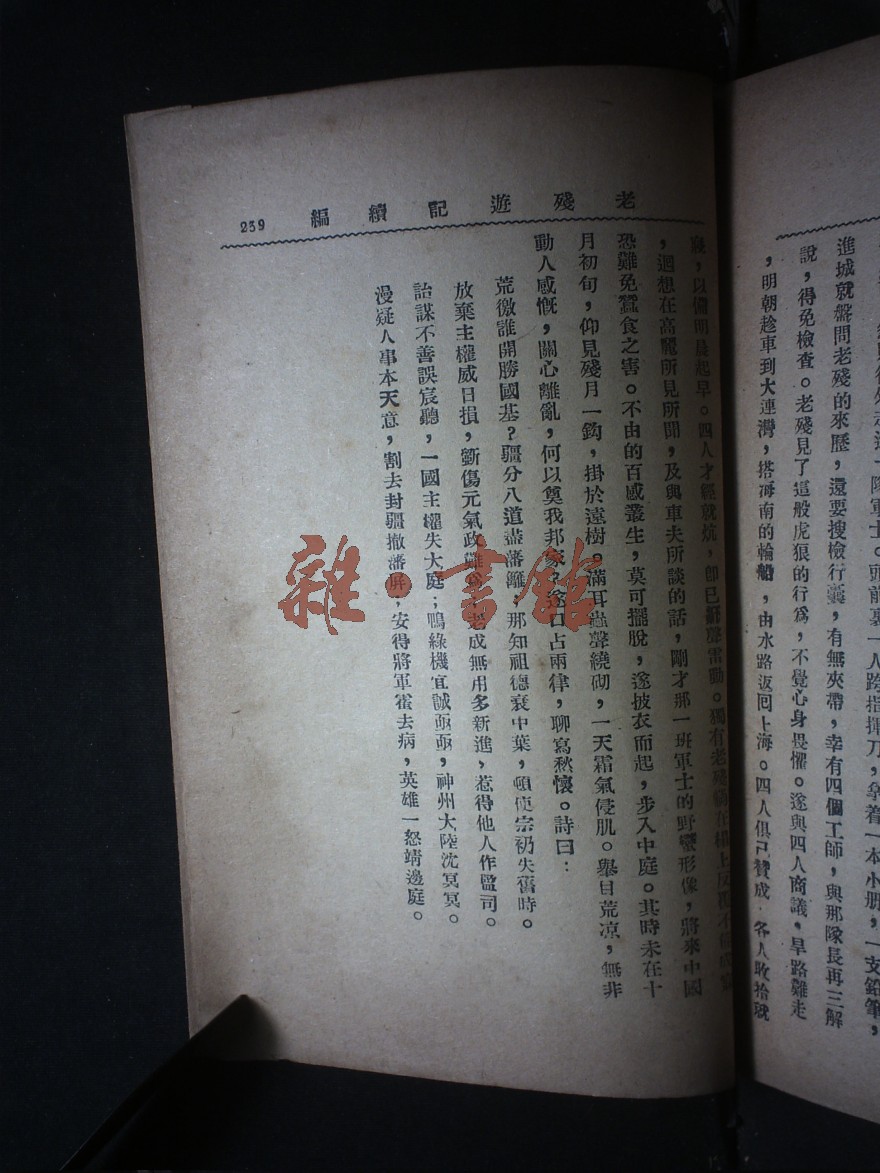 進城就盤問老殘的來歷，還要搜檢行囊，有無夾帶，幸有四個工師，與那隊長再三解
說，得免檢查。老殘見了這般虎狼的行爲，不覺心身畏懼。遂與四人商議，旱路難走
，明朝趁車到大連灣，搭海南的輪船，由水路返回上海。四人俱已贊成，各人收拾就
老殘遊記續編 239
寢，以備明晨起早。四人才經就炕，卽已鼾聲雷動。獨有老殘
，迴想在高麗所見所聞，及與車夫所談的話，剛才那一班軍士的野蠻形像，將來中國
恐難免蠶食之害。不由的百感叢生，莫可擺脫，遂披衣而起，步入中庭。其時未在十
月初旬，仰見殘月一鈎，掛於遠樹。滿耳蟲聲繞砌，一天霜氣侵肌。舉目荒凉，無非
動人感慨，關心離亂，何以奠我邦家？遂口占兩律，聊寫愁懷。詩曰：
荒徼誰開勝國基？疆分八道盡藩籬，那知祖德衰中葉，頓使宗祊失舊時。
放棄主權威日損，斵傷元氣政難爲，老成無用多新進，惹得他人作監司。
詒謀不善誤宸聽，一國主權失大庭；鴨綠機宜誠亟亟，神州大陸沈冥冥。
漫疑人事本天意，割去封疆撤藩屏，安得將軍霍去病，英雄一怒靖邊庭。
雜·書館